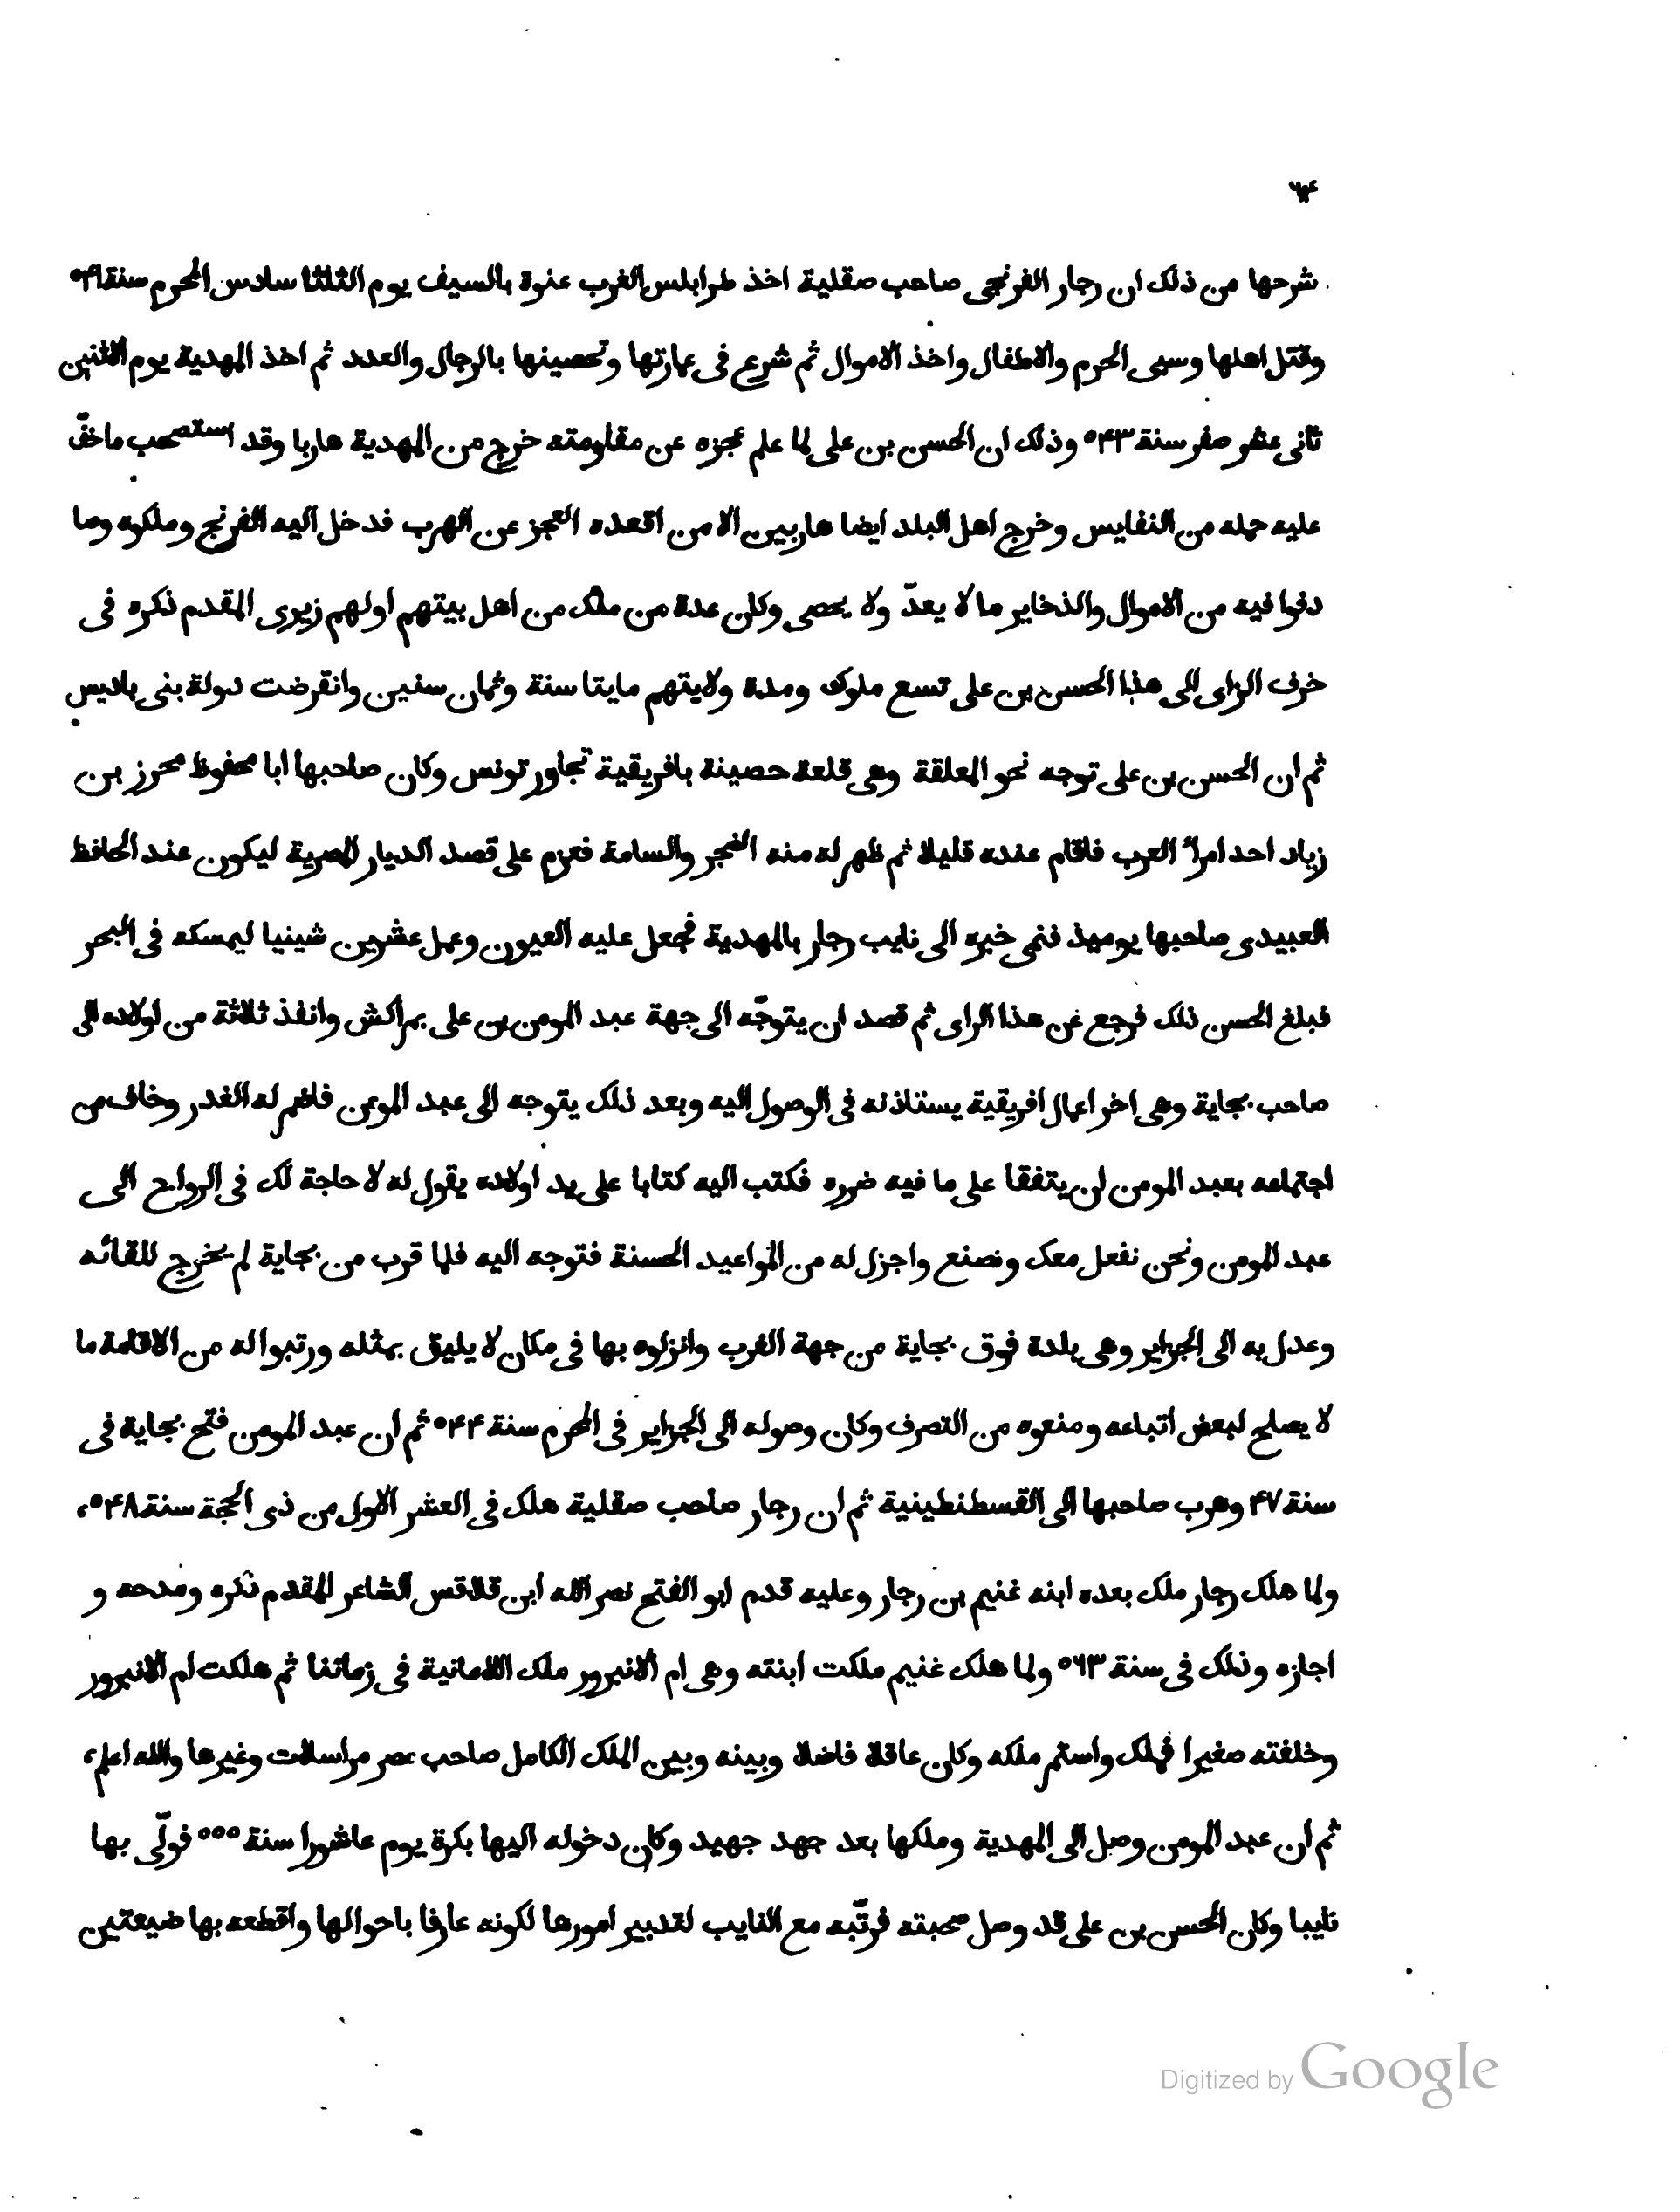 شرحها من ذلك ان رجار الفرنجى صاحب صقلية اخذ طرابلس الغرب عنوة بالسيف يوم الثلثا سادس المحرم سنة ٥٤١
وقتل اهلها وسبى الحرم والاطفال واخذ الاموال ثم شرع فى عمارتها وتحصينها بالرجال والعدد ثم اخذ المهدية يوم الاثنين
ثانى عشر صفر سنة ٥٤٣ وذلك ان الحسن بن على لما علم عجزه عن مقاومته خرج من المهدية هاربا وقد استصحب ما خفّ
عليه حمله من النفايس وخرج اهل البلد ايضا هاربين الا من اقعده العجز عن الهرب فدخل اليه الفرنج وملكوه وصا
دفوا فيه من الاموال والذخاير ما لا يعدّ ولا يحصى وكان عدة من ملك من اهل بيتهم اولهم زيرى المقدم ذكره فى
خرف الزاى الى هذا الحسن بن على تسع ملوك ومدة ولايتهم مايتا سنة وثمان سنين وانقرضت دولة بنى باديس
ثم ان الحسن بن على توجه نحو المعلقة وهى قلعة حصينة بافريقية تجاور تونس وكان صاحبها ابا محفوظ محرز بن
زياد احد امرأ العرب فاقام عنده قليلا ثم ظهر له منه الضجر والسامة فعزم على قصد الديار المصرية ليكون عند الحافظ
العبيدى صاحبها يوميذ فنمى خبره الى نايب رجار بالمهدية فجعل عليه العيون وعمل عشرين شينيا ليمسكه فى البحر
فبلغ الحسن ذلك فرجع عن هذا الراى ثم قصد ان يتوجّه الى جهة عبد المومن بن على بمراكش وانفذ ثلاثة من اولاده الى
صاحب بجاية وهى اخر اعمال افريقية يستاذنه فى الوصول اليه وبعد ذلك يتوجه الى عبد المومن فاضمر له الغدر وخاف من
اجتماعه بعبد المومن ان يتفقا على ما فيه ضرره فكتب اليه كتابا على يد اولاده يقول له لا حاجة لك فى الرواح الى
عبد المومن ونحن نفعل معك ونصنع واجزل له من المواعيد الحسنة فتوجه اليه فلما قرب من بجاية لم يخرج للقائه
وعدل به الى الجزاير وهى بلدة فوق بجاية من جهة الغرب وانزلوه بها فى مكان لا يليق بمثله ورتبوا له من الاقامة ما
لا يصلح لبعض اتباعه ومنعوه من التصرف وكان وصوله الى الجزاير فى المحرم سنة ٥٤٤ ثم ان عبد المومن فتح بجاية فى
سنة ٤٧ وهرب صاحبها الى القسطنطينية ثم ان رجار صاحب صقلية هلك فى العشر الاول من ذى الحجة سنة ٥٤٨،
ولما هلك رجار ملك بعده ابنه غنيم بن رجار وعليه قدم ابو الفتح نصر الله ابن قلاقس الشاعر المقدم ذكره ومدحه و
اجازه وذلك فى سنة ٥٦٣ ولما هلك غنيم ملكت ابنته وهى ام الانبرور ملك اللامانية فى زماننا ثم هلكت ام الانبرور
وخلفته صغيرا فملك واستمر ملكه وكان عاقلا فاضلا وبينه وبين الملك الكامل صاحب مصر مراسلات وغيرها والله اعلم،
ثم ان عبد المومن وصل الى المهدية وملكها بعد جهد جهيد وكان دخوله اليها بكرة يوم عاشورا سنة ٥٥٥ فولّى بها
نايبا وكان الحسن بن على قد وصل صحبته فرتّبه مع النايب لتدبير امورها لكونه عارفا باحوالها واقطعه بها ضيعتين
Digitized by Google